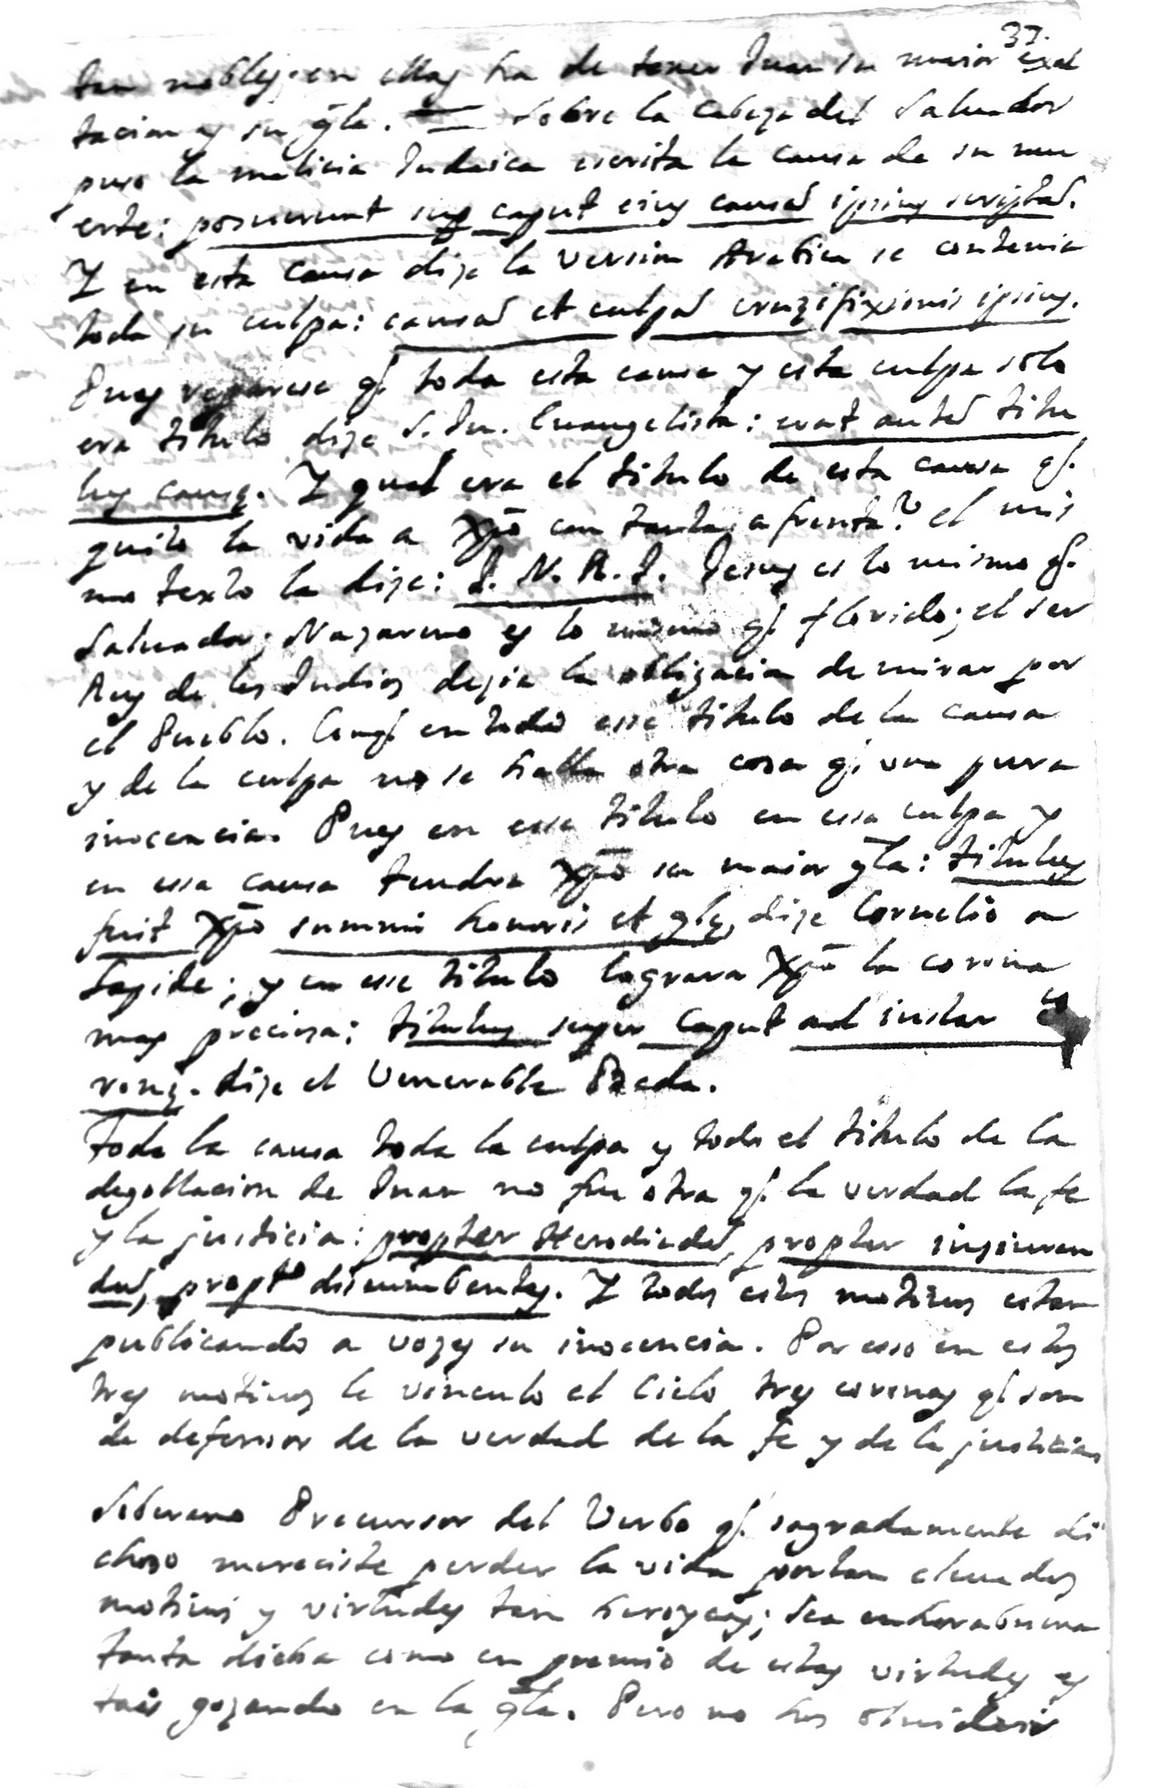 37.
tan nobles; en ellas ha de tener Juan su maior exal
tacion y su gla. = Sobre la cabeza del Salvador
puso la malicia Judaica escrita la causa de su mu
erte: posuerunt sup caput eius causã ipsius scriptã.
Y en esta causa dize la version Arabica se contenia
toda su culpa: causã et culpã cruzifixionis ipsius.
Pues reparese q. toda esta causa y esta culpa solo
era titulo dize S. Ju. Evangelista: erat autẽ titu
lus causę. Y qual era el titulo de esta causa q.
quito la vida a Xpō con tanta afrenta? el mis
mo texto la dize: J. N. R. J. Jesus es lo mismo q.
Salvador; Nazareno es lo mismo q. florido; el ser
Rey de los Judios dezia la obligacion de mirar por
el Pueblo. Conq. en todo esse titulo de la causa
y de la culpa no se halla otra cosa q. una pura
inocencia. Pues en esse titulo en essa culpa y
en essa causa tendra Xpō su maior gla: titulus
fuit Xpō summi honoris et glę, dize Cornelio a
Lapide; y en esse titulo lograra Xpō la corona
mas preciosa: titulus super caput ad instar co
ronę. dize el Venerable Beda.
Toda la causa toda la culpa y todo el titulo de la
degollacion de Juan no fue otra q. la verdad la fe
y la justicia: propter Herodiadẽ, propter iusiuran
dũ, propt discumbentes. Y todos estos motivos estan
publicando a vozes su inocencia. Por esso en estos
tres motivos le vinculo el Cielo tres coronas q. son
de defensor de la verdad de la fe y de la justicia
Soberano Precursor del Verbo q. sagradamente di
choso mereciste perder la vida por tan elevados
motivos y virtudes tan heroycas; sea enhorabuena
tanta dicha como en premio de estas virtudes es
tais gozando en la gla. Pero no os olvideis